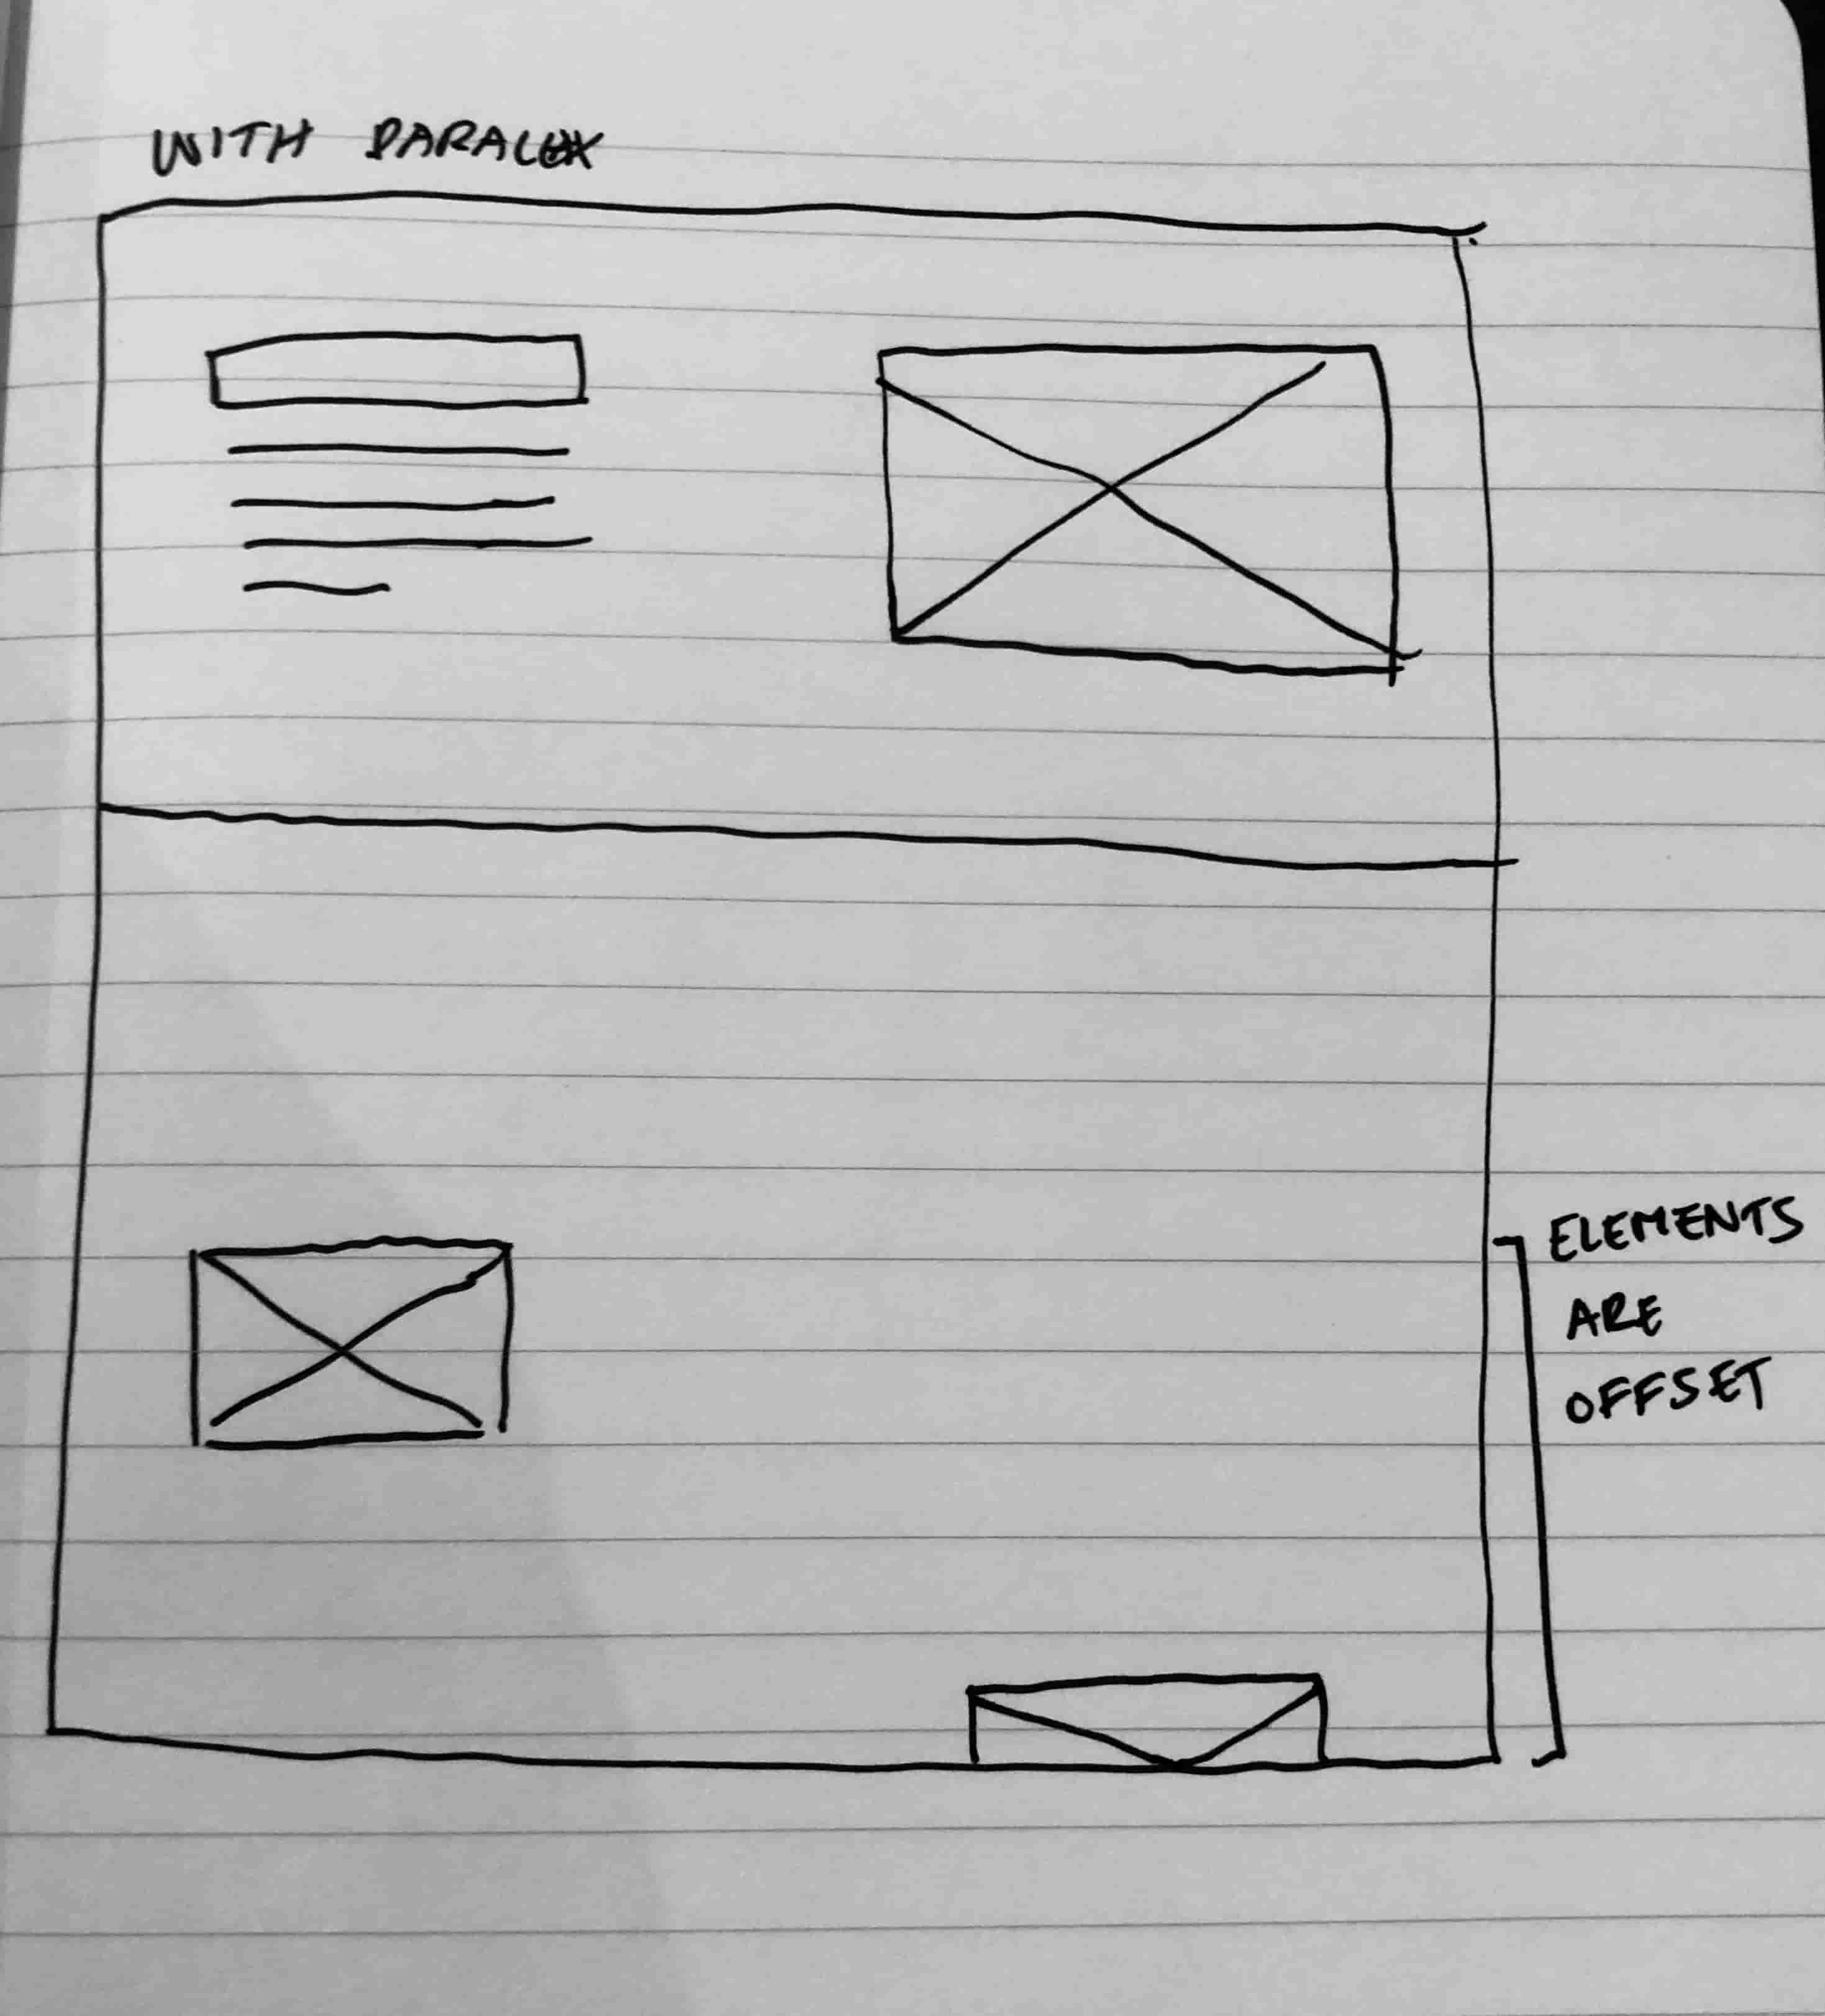 WITH PARALAX
ELEMENTS
ARE
OFFSET